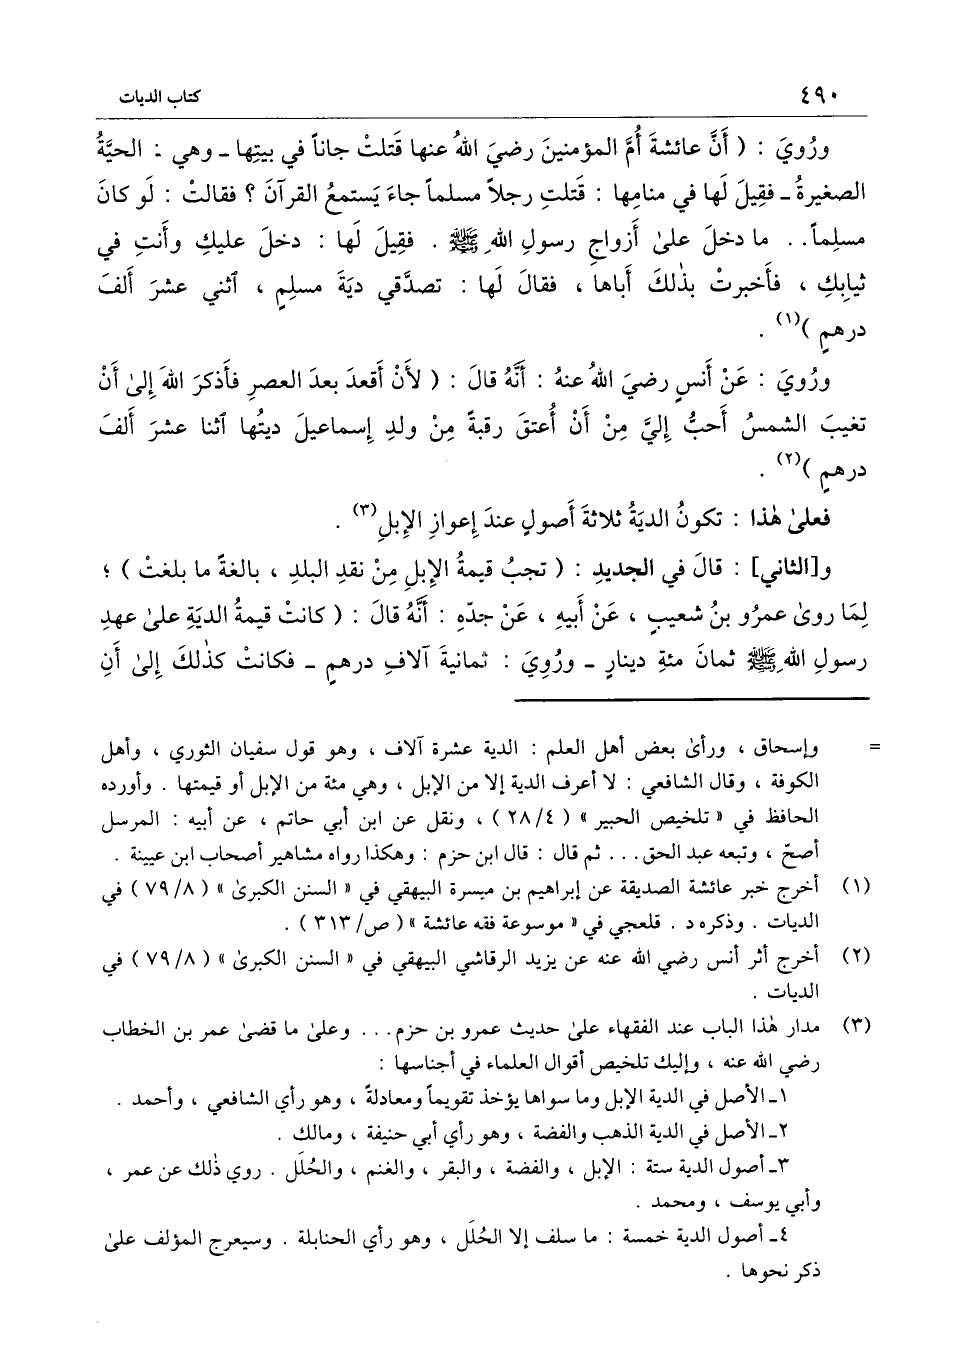 ٤٩٠ كتاب الديات
ورُويَ : ( أَنَّ عائشةَ أُمَّ المؤمنينَ رضيَ اللهُ عنها قَتلتْ جاناً في بيتِها ـ وهي : الحيَّةُ
الصغيرةُ ـ فقِيلَ لَها في منامِها : قَتلتِ رجلاً مسلماً جاءَ يَستمعُ القرآنَ ؟ فقالتْ : لَو كانَ
مسلِماً.. ما دخلَ علىٰ أَزواجِ رسولِ اللهِ ﷺ . فقِيلَ لَها : دخلَ عليكِ وأَنتِ في
ثيابِكِ ، فأَخبرتْ بذٰلكَ أَباها ، فقالَ لَها : تصدَّقي ديَةَ مسلِمٍ ، ٱثني عشرَ أَلفَ
درهمٍ )(١) .
ورُويَ : عَنْ أَنسٍ رضيَ اللهُ عنهُ : أَنَّهُ قالَ : ( لأَنْ أَقعدَ بعدَ العصرِ فأَذكرَ اللهَ إِلىٰ أَنْ
تغيبَ الشمسُ أَحبُّ إِليَّ مِنْ أَنْ أُعتقَ رقبةً مِنْ ولدِ إِسماعيلَ ديتُها ٱثنا عشرَ أَلفَ
درهمٍ )(٢) .
فعلىٰ هٰذا : تكونُ الديَةُ ثلاثةَ أَصولٍ عندَ إِعوازِ الإِبلِ(٣) .
و[الثاني] : قالَ في الجديدِ : ( تجبُ قيمةُ الإِبلِ مِنْ نقدِ البلدِ ، بالغةً ما بلغتْ ) ؛
لِمَا روىٰ عمرُو بنُ شعيبٍ ، عَنْ أَبيهِ ، عَنْ جدِّهِ : أَنَّهُ قالَ : ( كانتْ قيمةُ الديَةِ علىٰ عهدِ
رسولِ اللهِ ﷺ ثمانَ مئةِ دينارٍ ـ ورُوِيَ : ثمانيةَ آلافِ درهمٍ ـ فكانتْ كذٰلكَ إِلىٰ أَنِ
= وإسحاق ، ورأىٰ بعض أهل العلم : الدية عشرة آلاف ، وهو قول سفيان الثوري ، وأهل
الكوفة ، وقال الشافعي : لا أعرف الدية إلا من الإبل ، وهي مئة من الإبل أو قيمتها . وأورده
الحافظ في « تلخيص الحبير » ( ٤/ ٢٨ ) ، ونقل عن ابن أبي حاتم ، عن أبيه : المرسل
أصحّ ، وتبعه عبد الحق... ثم قال : قال ابن حزم : وهكذا رواه مشاهير أصحاب ابن عيينة .
(١) أخرج خبر عائشة الصديقة عن إبراهيم بن ميسرة البيهقي في « السنن الكبرىٰ » ( ٨/ ٧٩ ) في
الديات . وذكره د . قلعجي في « موسوعة فقه عائشة » ( ص/ ٣١٣ ) .
(٢) أخرج أثر أنس رضي الله عنه عن يزيد الرقاشي البيهقي في « السنن الكبرىٰ » ( ٨/ ٧٩ ) في
الديات .
(٣) مدار هٰذا الباب عند الفقهاء علىٰ حديث عمرو بن حزم... وعلىٰ ما قضىٰ عمر بن الخطاب
رضي الله عنه ، وإليك تلخيص أقوال العلماء في أجناسها :
١ـ الأصل في الدية الإبل وما سواها يؤخذ تقويماً ومعادلةً ، وهو رأي الشافعي ، وأحمد .
٢ـ الأصل في الدية الذهب والفضة ، وهو رأي أبي حنيفة ، ومالك .
٣ـ أصول الدية ستة : الإبل ، والفضة ، والبقر ، والغنم ، والحُلَل . روي ذٰلك عن عمر ،
وأبي يوسف ، ومحمد .
٤ـ أصول الدية خمسة : ما سلف إلا الحُلَل ، وهو رأي الحنابلة . وسيعرج المؤلف علىٰ
ذكر نحوها .